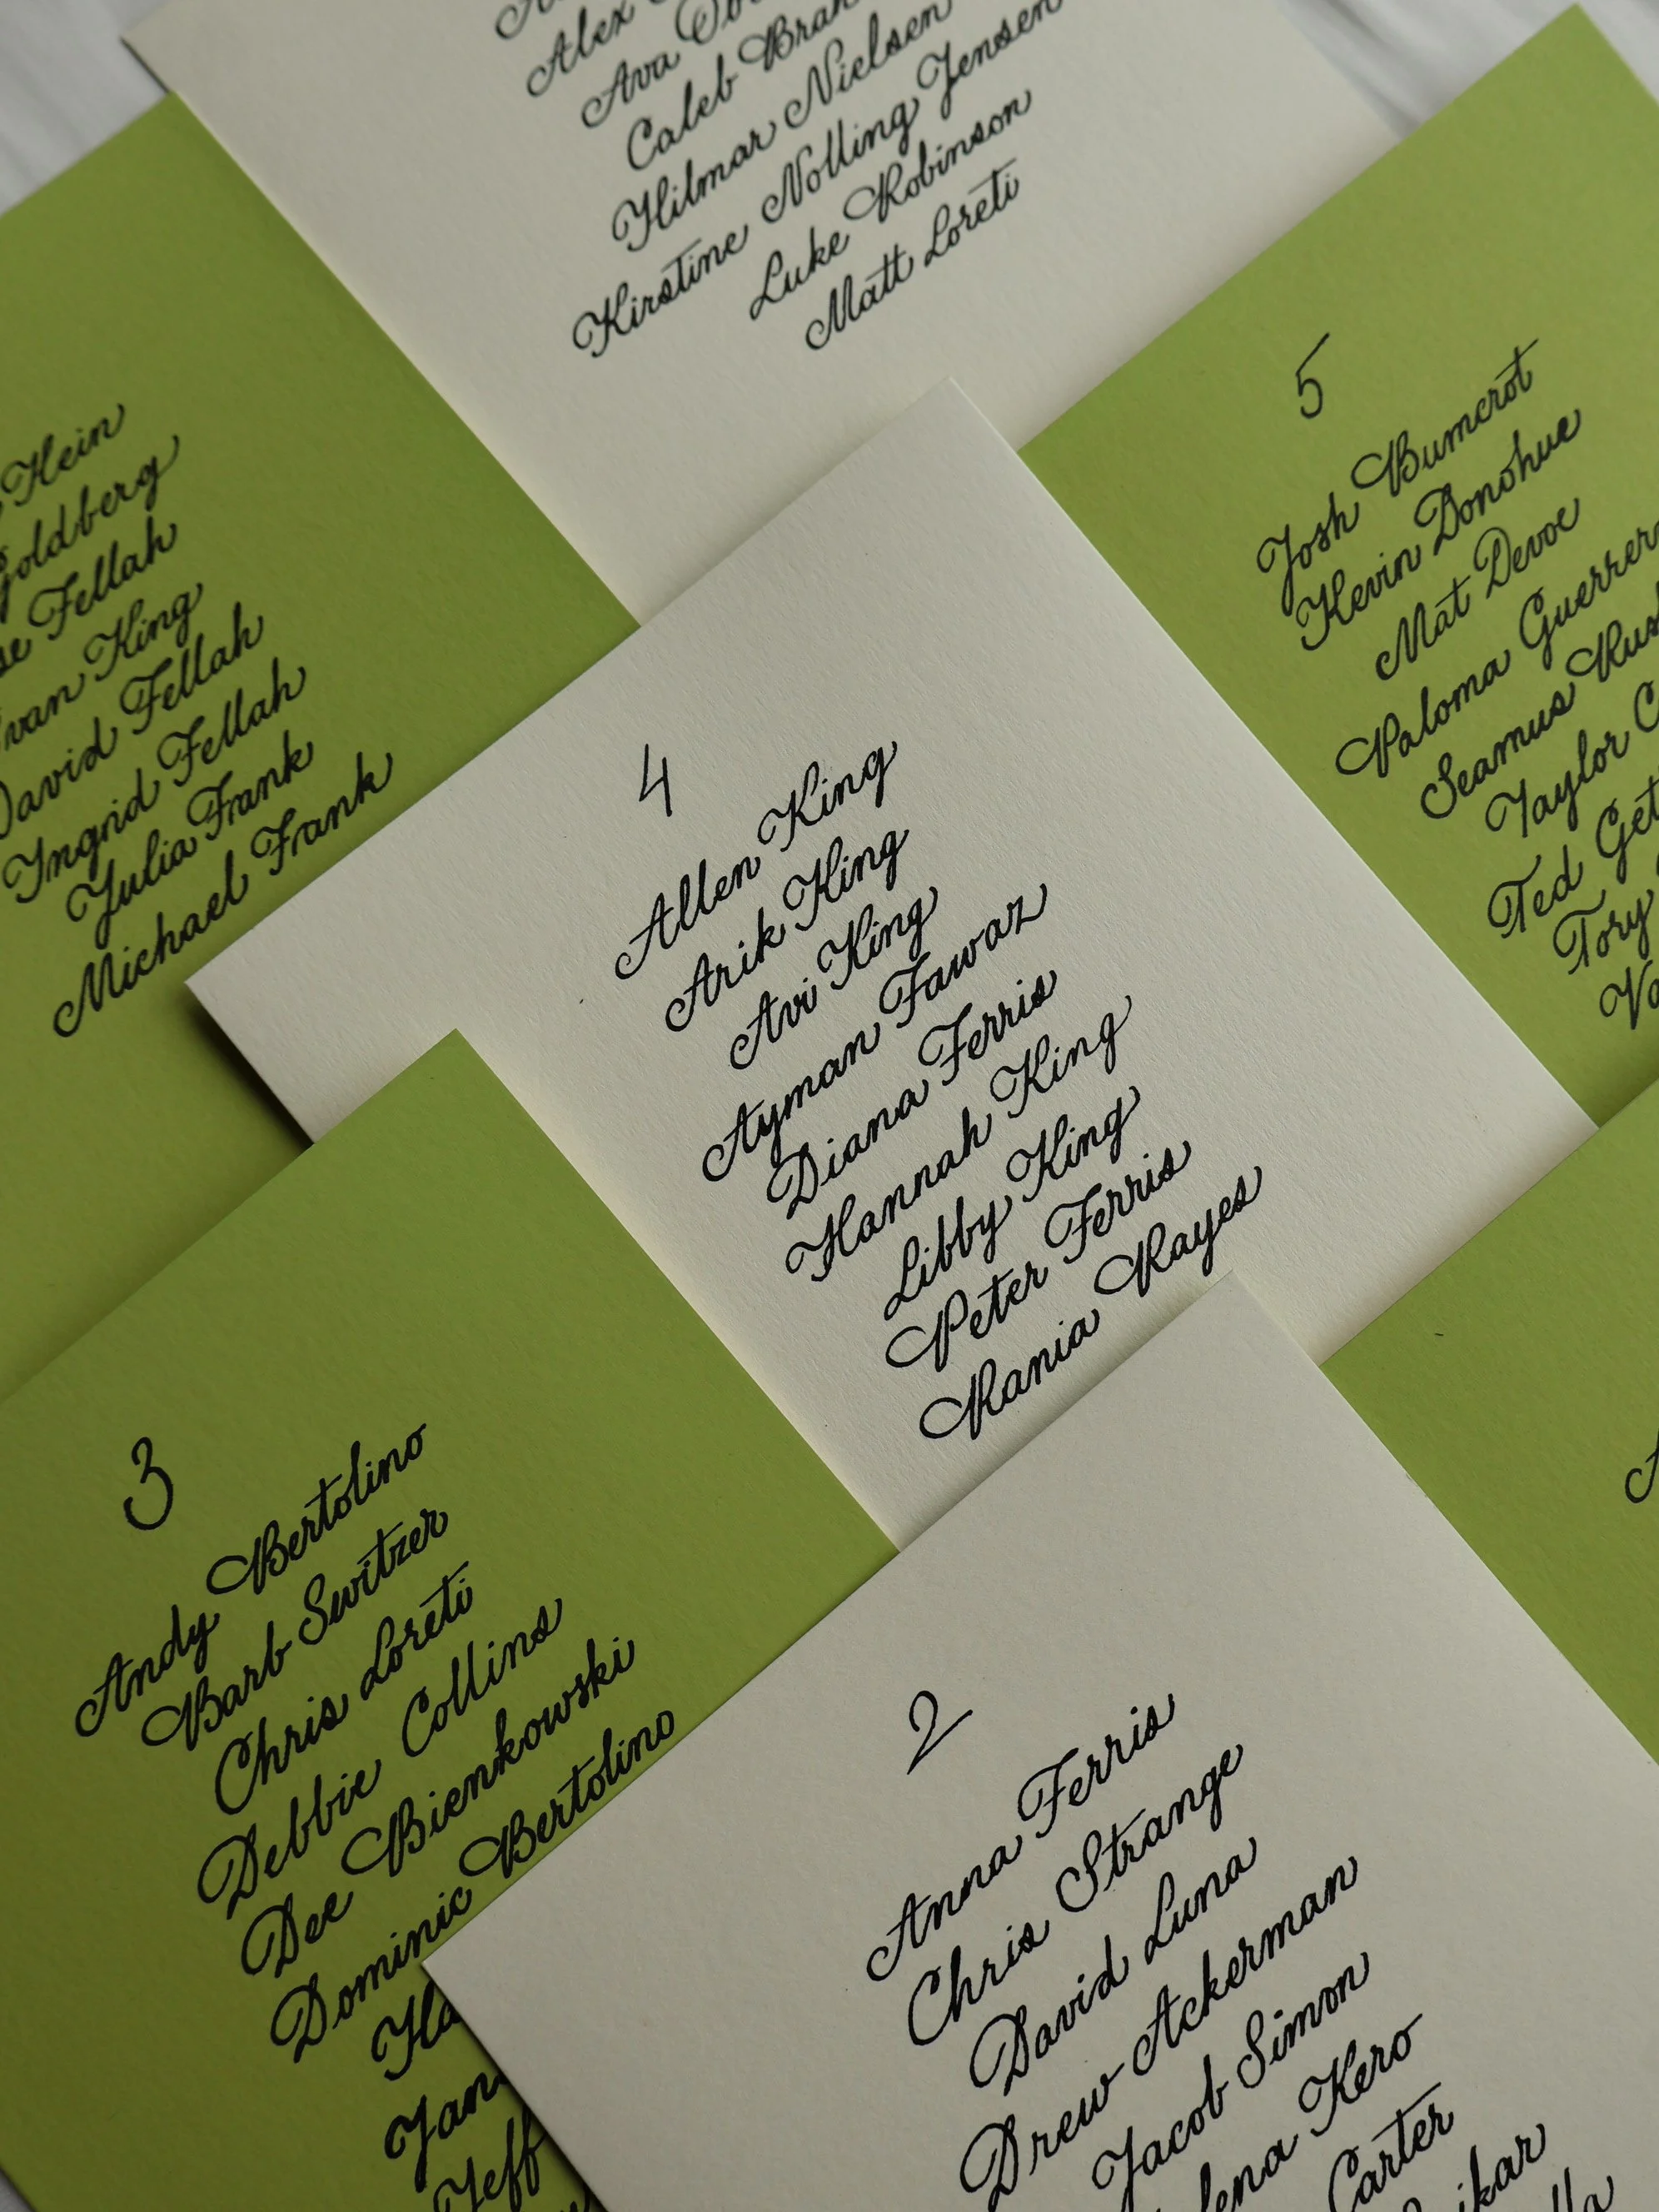 Alex
Ava
Caleb
Hilmar Nielsen
Kirstine Nolling Jensen
Luke Robinson
Matt Loreti
Hein
Goldberg
Fellah
King
David Fellah
Ingrid Fellah
Julia Frank
Michael Frank
5
Josh Bumcrot
Kevin Donohue
Mat Devoe
Paloma
Seamus
Taylor
Ted
Tory
4
Allen King
Arik King
Avi King
Ayman Fawaz
Diana Ferris
Hannah King
Libby King
Peter Ferris
Rania Rayes
3
Andy Bertolino
Barb Switzer
Chris Loreti
Debbie Collins
Dee Bienkowski
Dominic Bertolino
Jeff
2
Anna Ferris
Chris Strange
David Luna
Drew Ackerman
Jacob Simon
Kero
Carter